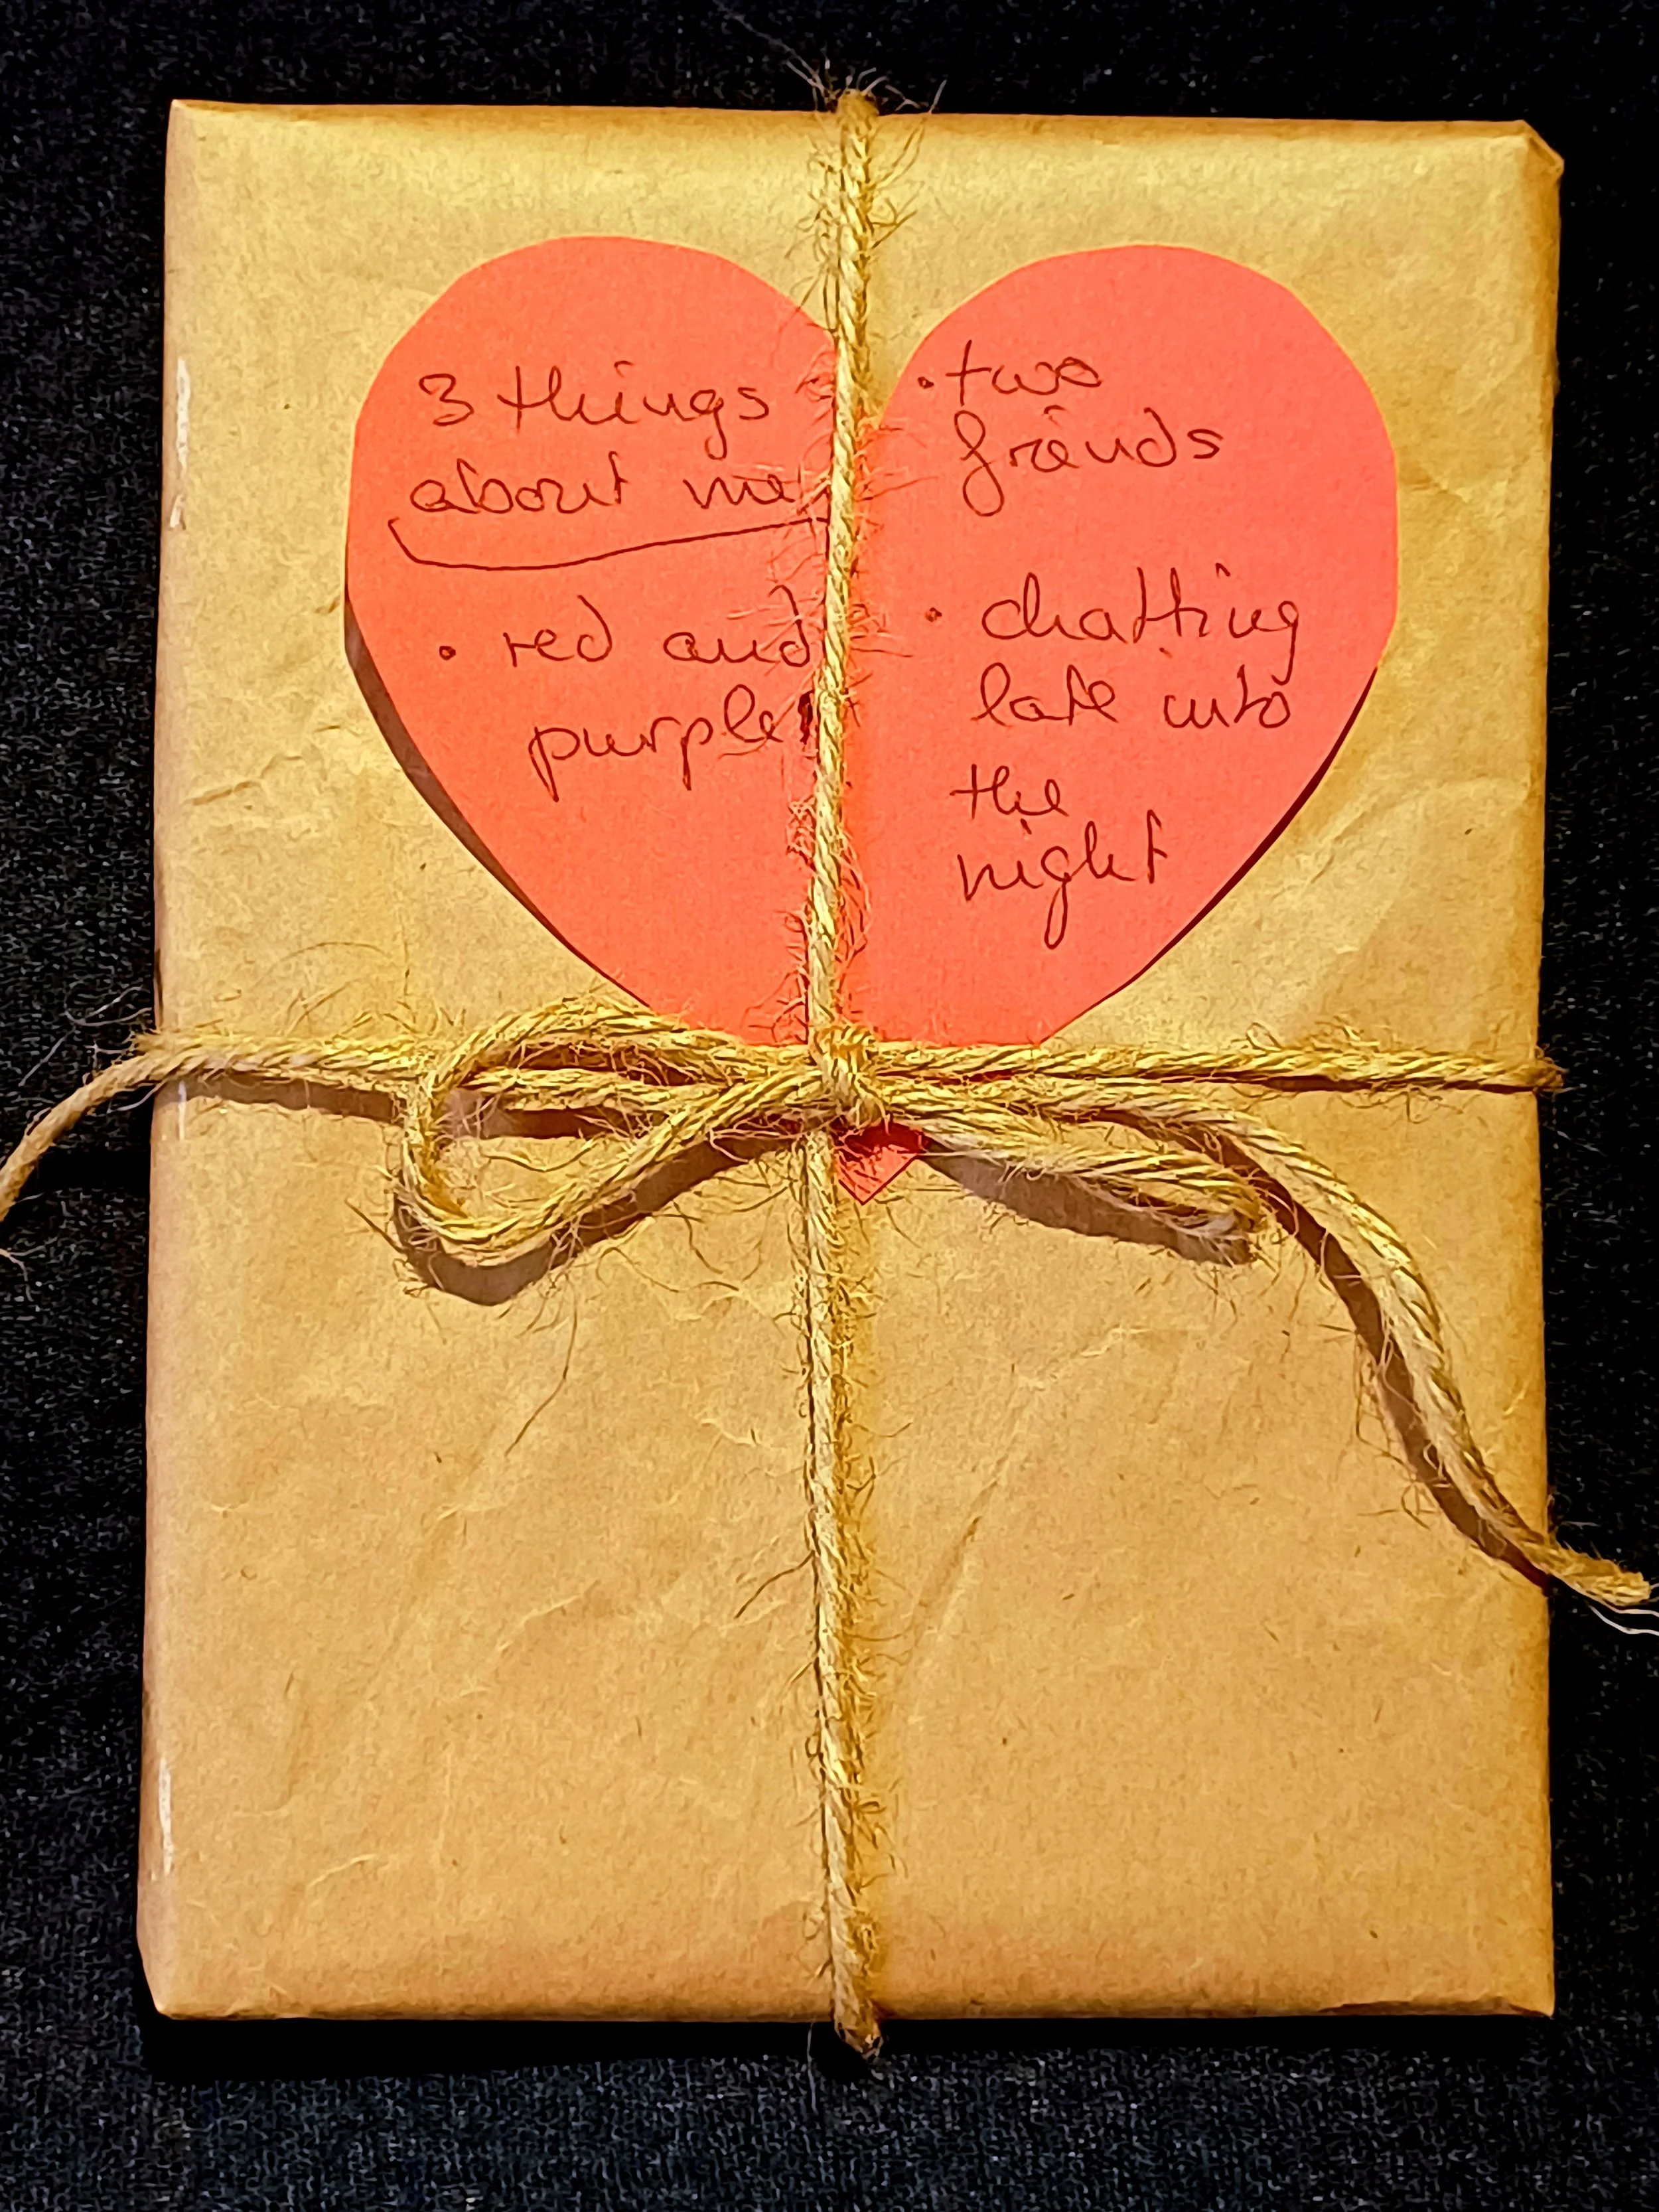 3 things
about me
• red and
purple
• two
friends
• chatting
late into
the
night